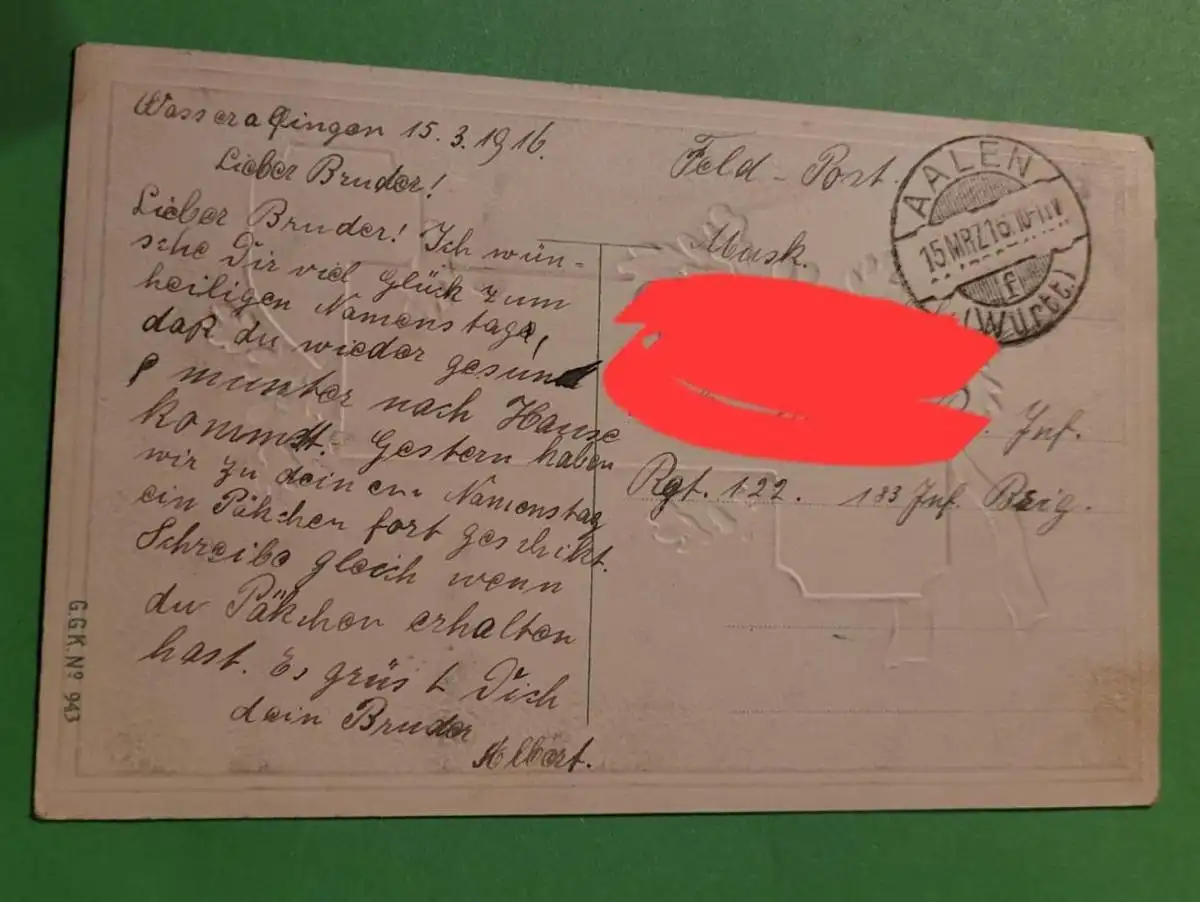 Wasseralfingen 15.3.1916.
Lieber Bruder!
Lieber Bruder! Ich wün-
sche Dir viel Glück zum
heiligen Namenstage,
daß du wieder gesund
munter nach Hause
kommst. Gestern haben
wir zu deinem Namenstag
ein Päkchen fort geschikt.
Schreibe gleich wenn
du Päkchen erhalten
hast. Es grüst Dich
dein Bruder
Albert.
Feld-Post.
Musk.
Inf.
Rgt. 122. 183 Inf. Brig.
AALEN
15 MRZ 16. 10-11V
f
(Württ.)
G.G.K. No 943